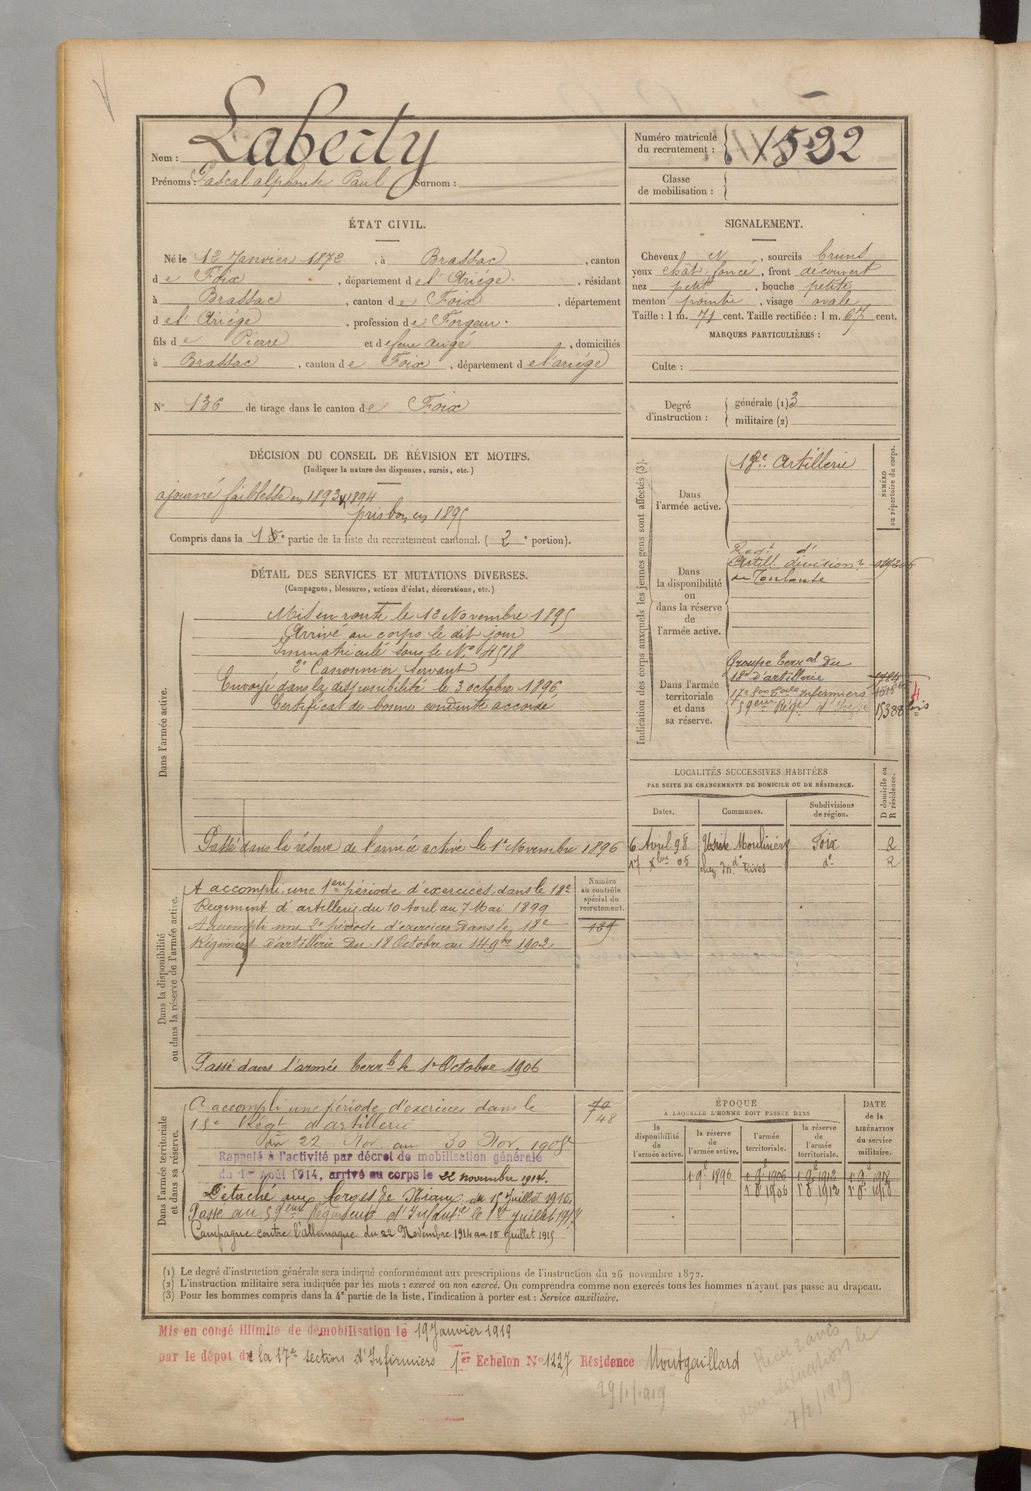 Nom : Laberty
Prénoms : Pascal alphonse Paul Surnom :
Numéro matricule du recrutement : 1532
Classe de mobilisation :
ÉTAT CIVIL.
Né le 12 Janvier 1872, à Brassac, canton
de Foix, département de l'Ariége, résidant
à Brassac, canton de Foix, département
de l'Ariége, profession de Forgeur.
fils de Pierre et de feue angé, domiciliés
à Brassac, canton de Foix, département de l'ariége
N° 136 de tirage dans le canton de Foix
SIGNALEMENT.
Cheveux N, sourcils bruns
yeux chât. foncé, front découvert
nez petit, bouche petite
menton pointu, visage ovale
Taille : 1 m. 71 cent. Taille rectifiée : 1 m. 67 cent.
MARQUES PARTICULIÈRES :
Culte :
Degré d'instruction : générale (1) 3
militaire (2)
DÉCISION DU CONSEIL DE RÉVISION ET MOTIFS.
(Indiquer la nature des dispenses, sursis, etc.)
ajourné faiblesse en 1893 1894
pris bon en 1895
Compris dans la 1e partie de la liste du recrutement cantonal. (2e portion).
DÉTAIL DES SERVICES ET MUTATIONS DIVERSES.
(Campagnes, blessures, actions d'éclat, décorations, etc.)
Dans l'armée active.
Mis en route le 12 Novembre 1895
Arrivé au corps le dit jour
Immatriculé sous le No 4518
2e Canonnier servant
Envoyé dans la disponibilité le 3 octobre 1896
Certificat de bonne conduite accordé
Passé dans la réserve de l'armée active le 1er Novembre 1896
Indication des corps auxquels les jeunes gens sont affectés (3).
NUMÉRO au répertoire du corps.
Dans l'armée active.
18e Artillerie
Dans la disponibilité ou dans la réserve de l'armée active.
Regt d'
Artill. divisionre
de Toulouse
Dans l'armée territoriale et dans sa réserve.
Groupe Terral du
18e d'artillerie
17e son Torale infirmiers
59eme Régt d'Infie 15388 bis
LOCALITÉS SUCCESSIVES HABITÉES
PAR SUITE DE CHANGEMENTS DE DOMICILE OU DE RÉSIDENCE.
Dates. Communes. Subdivisions de région. D domicile ou R résidence.
6 Avril 98 Usine Moulinery Foix R
17 Xbre 05 chez Md Rives do R
Dans la disponibilité ou dans la réserve de l'armée active.
Numéro au contrôle spécial du recrutement.
A accompli une 1ere période d'exercices dans le 18e
Regiment d'artillerie du 10 Avril au 7 Mai 1899
A accompli une 2e période d'exercices dans le 18e
Régiment d'artillerie du 18 Octobre au 14 9bre 1902
Passé dans l'armée terrle le 1er Octobre 1906
Dans l'armée territoriale et dans sa réserve.
A accompli une période d'exercices dans le
18e Régt d'artillerie
du 22 Nov. au 30 Nov. 1908
48
Rappelé à l'activité par décret de mobilisation générale
du 1er Août 1914, arrivé au corps le 22 novembre 1914.
Détaché aux forges de du 15 Juillet 1915.
Passé au 59eme Régiment d'Infantie le 1er juillet 1917
Campagne contre l'allemagne du 22 Novembre 1914 au 15 juillet 1915
ÉPOQUE
A LAQUELLE L'HOMME DOIT PASSER DANS
la disponibilité de l'armée active. la réserve de l'armée active. l'armée territoriale. la réserve de l'armée territoriale.
DATE de la LIBÉRATION du service militaire.
1 9e 1896 1 9e 1906 1 9e 1912 1 9e 1918
1 8e 1906 1 8 1912 1 8e 1918
(1) Le degré d'instruction générale sera indiqué conformément aux prescriptions de l'instruction du 26 novembre 1872.
(2) L'instruction militaire sera indiquée par les mots : exercé ou non exercé. On comprendra comme non exercés tous les hommes n'ayant pas passé au drapeau.
(3) Pour les hommes compris dans la 4e partie de la liste, l'indication à porter est : Service auxiliaire.
Mis en congé illimité de démobilisation le 19 Janvier 1919
par le dépot de la 17e section d'Infirmiers 1er Echelon No 1227 Résidence Montgaillard
29/1/1919
7/2/1919